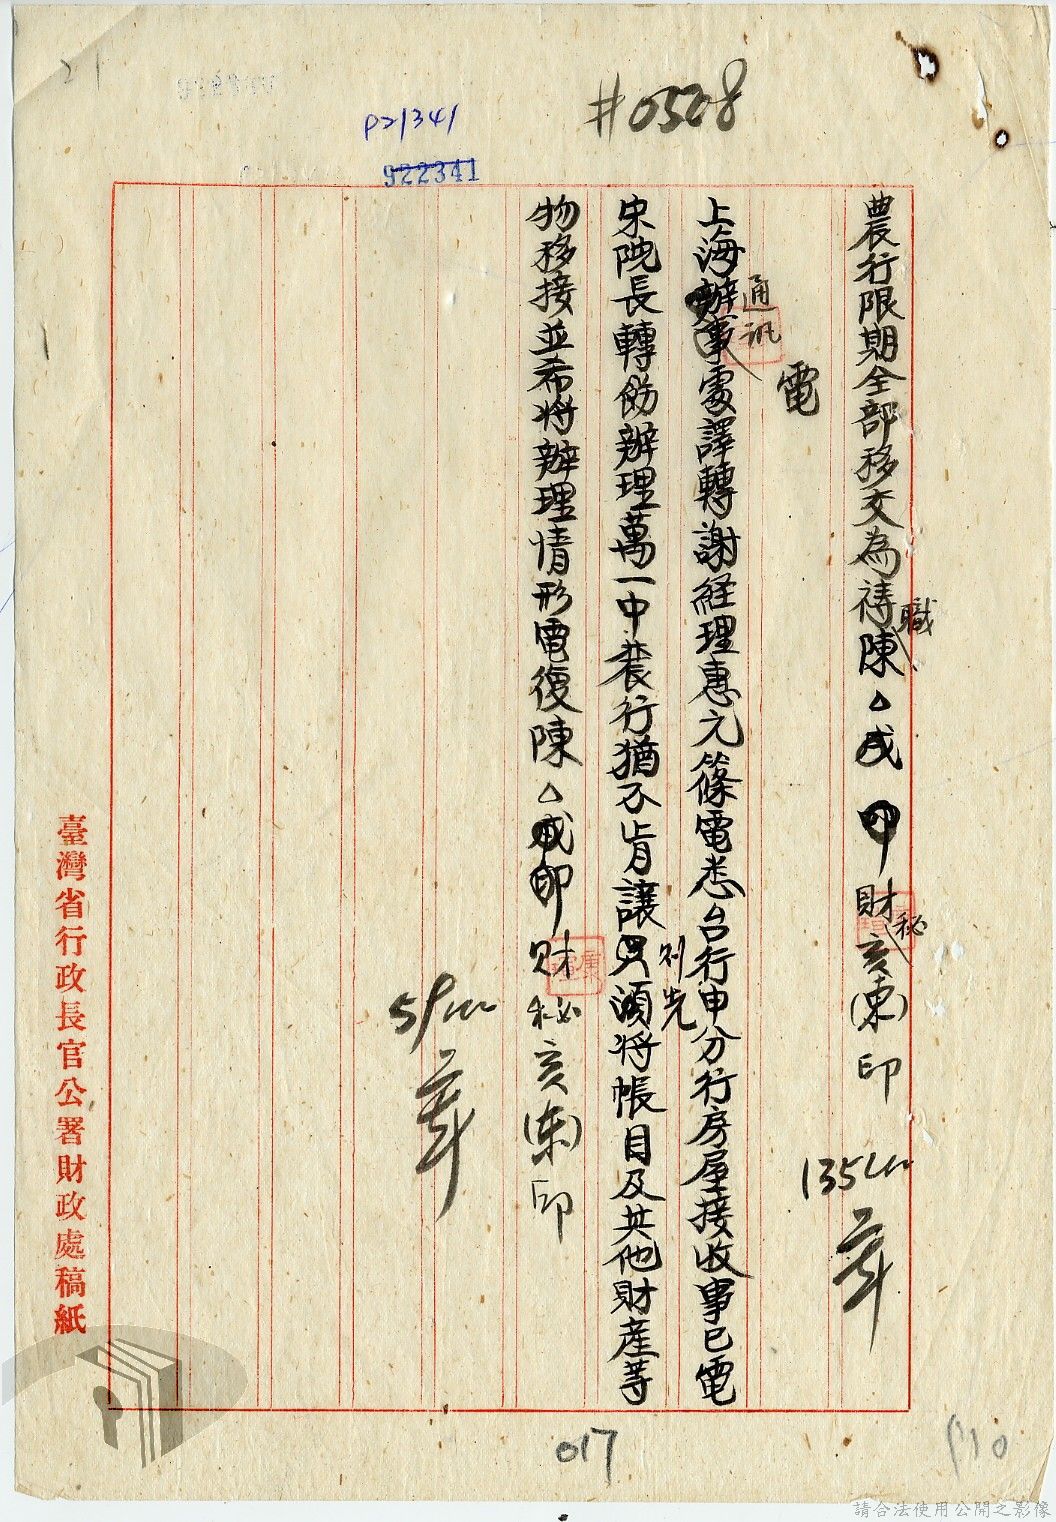 #0508
P21341
922341
農行限期全部移交為禱職陳△成 印財秘亥(東)印
135
電
上海通訊處譯轉謝經理惠元篠電悉台行申分行房屋接收事已電
宋院長轉飭辦理萬一中農行猶不肯讓則先將帳目及其他財產等
物移接並希將辦理情形電復陳△成印財秘亥(東)印
59
臺灣省行政長官公署財政處稿紙
017
P10
請合法使用公開之影像